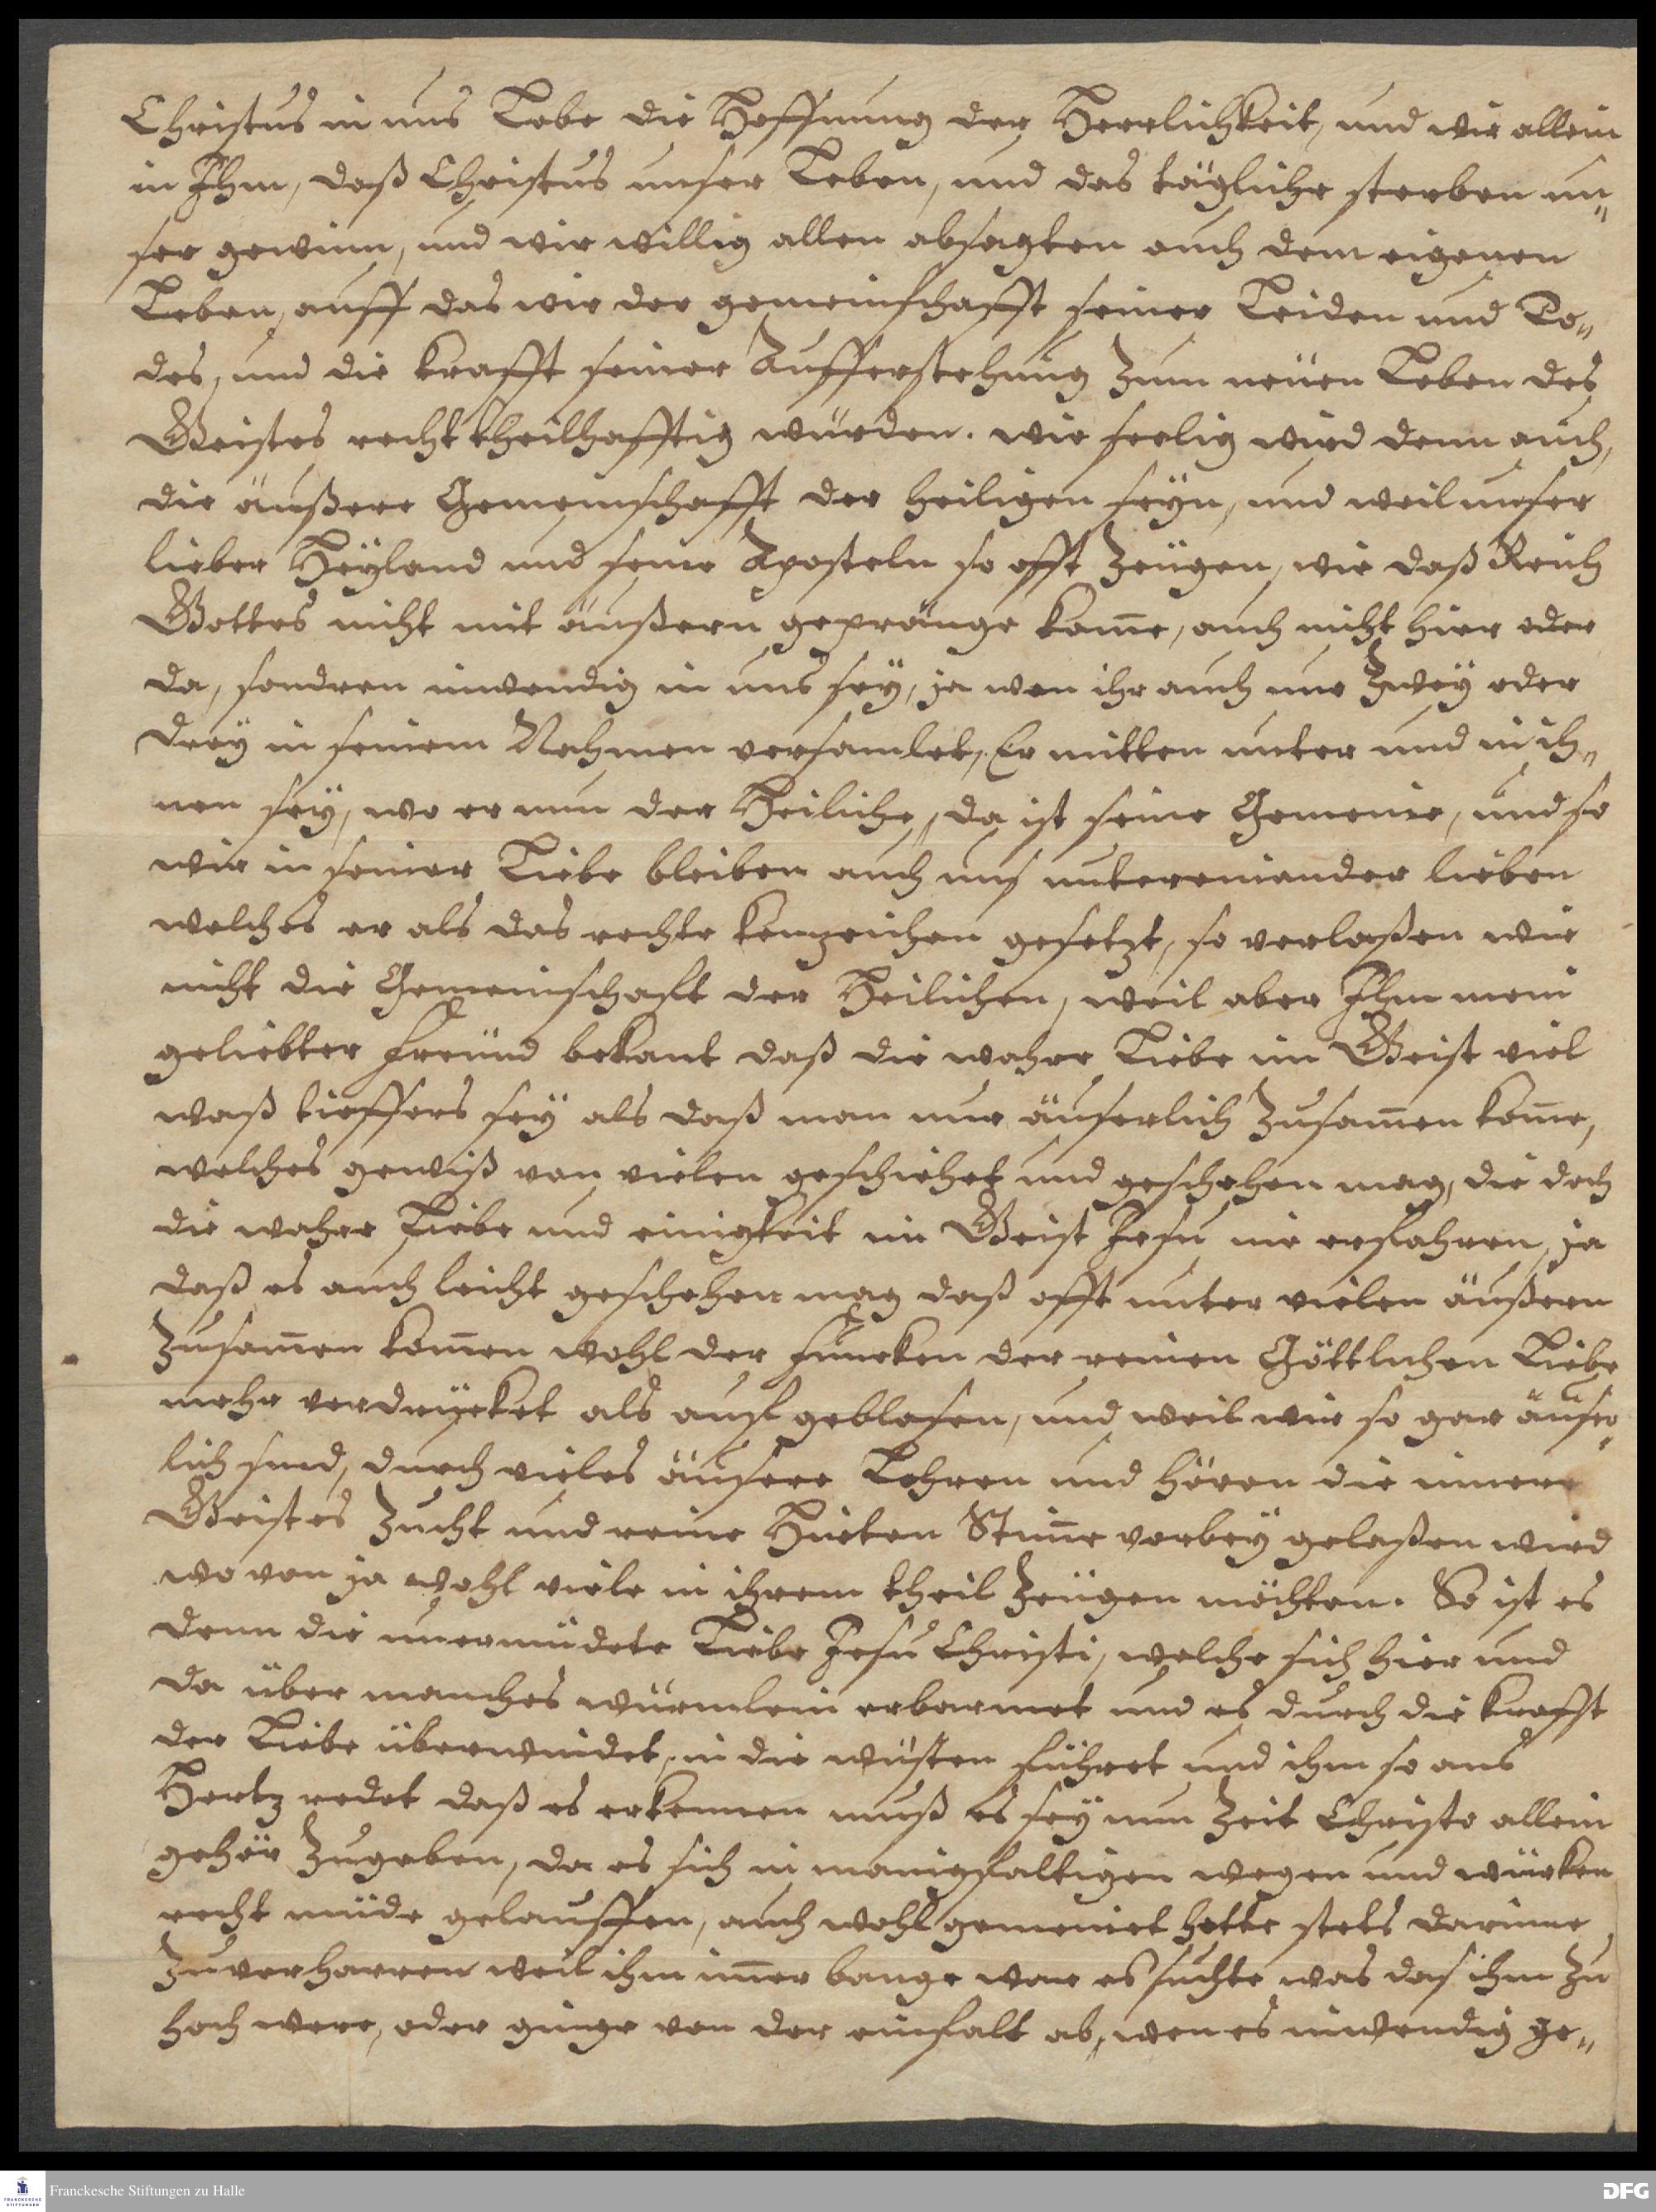 Christus in uns Lebe die Hoffnung der Herrlichkeit, und wir allein
in Ihm, daß Christus unser Leben, und das tägliche sterben un„
ser gewinn, und wir willig allen absagten auch dem eigenen
Leben, auff das wir der gemeinschafft seiner Leiden und To„
des, und die krafft seiner Aufferstehung zum neuen Leben des
Geistes recht theilhafftig würden. wie seelig wird denn auch,
die äußere Gemeinschafft der heiligen seyn, und weil unser
lieber Heyland und seine Aposteln so offt zeugen, wie daß Reich
Gottes nicht mit äußern gepränge kom̄e, auch nicht hier oder
da, sondern inwendig in uns sey, ja wen ihr auch nur zwey oder
drey in seinem Nahmen versamlet, Er mitten unter und in ih„
nen sey, wo er nun der Heiliche, da ist seine Gemeine, und so
wir in seiner Liebe bleiben auch uns untereinander lieben
welches er als das rechte kenzeichen gesetzt, so verlaßen wir
nicht die Gemeinschaft der Heilichen, weil aber Ihm mein
geliebter freund bekant daß die wahre Liebe im Geist viel
waß tieffers sey als daß man nur äuserlich zusam̄en kom̄e,
welches gewiß von vielen geschiehet und geschehen mag, die doch
die wahre Liebe und einigkeit im Geist Jesu nie erfahren, ja
daß es auch leicht geschehen mag daß offt unter vielen äußern
zusam̄en kom̄en wohl der funcken der reinen Göttlichen Liebe
mehr verdrücket als auf geblasen, und weil wir so gar äuser„
lich sind, durch vieles äusere Lehren und hören die innere
Geistes zucht und reine Hirten Stim̄e vorbey gelaßen wird
wo von ja wohl viele in ihrem theil zeugen möchten. So ist es
denn die unermüdete Liebe Jesu Christi, welche sich hier und
da über manches würmlein erbarmet und es durch die krafft
der Liebe überwindet, in die wüsten führet und ihm so ans
Hertz redet daß es erkennen muß es sey nun zeit Christo allein
gehör zugeben, da es sich in manigfaltigen wegen und würken
recht müde gelauffen, auch wohl gemeinet hette stets darinne
zuverharren weil ihm im̄er bange war es suchte was das ihm zu
hoch were, oder ginge von der einfalt ab, wen es inwendig ge„
Franckesche Stiftungen zu Halle
FRANCKESCHE STIFTUNGEN
DFG